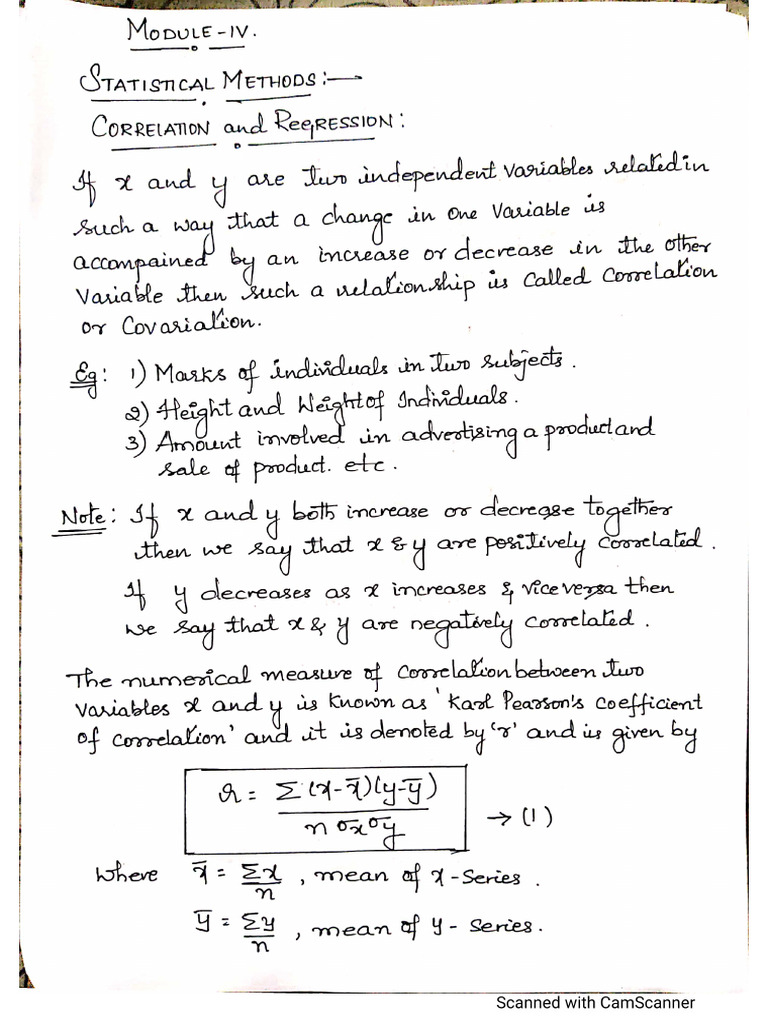 MODULE-IV.
STATISTICAL METHODS:—
CORRELATION and REGRESSION:
If x and y are two independent variables related in
such a way that a change in one variable is
accompained by an increase or decrease in the other
variable then such a relationship is called correlation
or covariation.
Eg: 1) Marks of individuals in two subjects.
2) Height and Weight of Individuals.
3) Amount involved in advertising a product and
sale of product. etc.
Note: If x and y both increase or decrease together
then we say that x & y are positively correlated.
If y decreases as x increases & vice versa then
we say that x & y are negatively correlated.
The numerical measure of correlation between two
variables x and y is known as 'Karl Pearson's coefficient
of correlation' and it is denoted by 'r' and is given by
r = Σ(x-x̄)(y-ȳ) / n σx σy → (1)
where x̄ = Σx/n , mean of x-series.
ȳ = Σy/n , mean of y-series.
Scanned with CamScanner